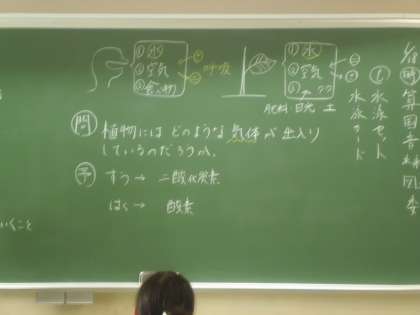 ①水
②空気
③食べ物
呼吸
①水
②空気
肥料 日光 土
問 植物には どのような 気体が 出入り
しているのだろうか。
予 すう→ 二酸化炭素
はく→ 酸素
いくこと
水泳セット
水泳カード